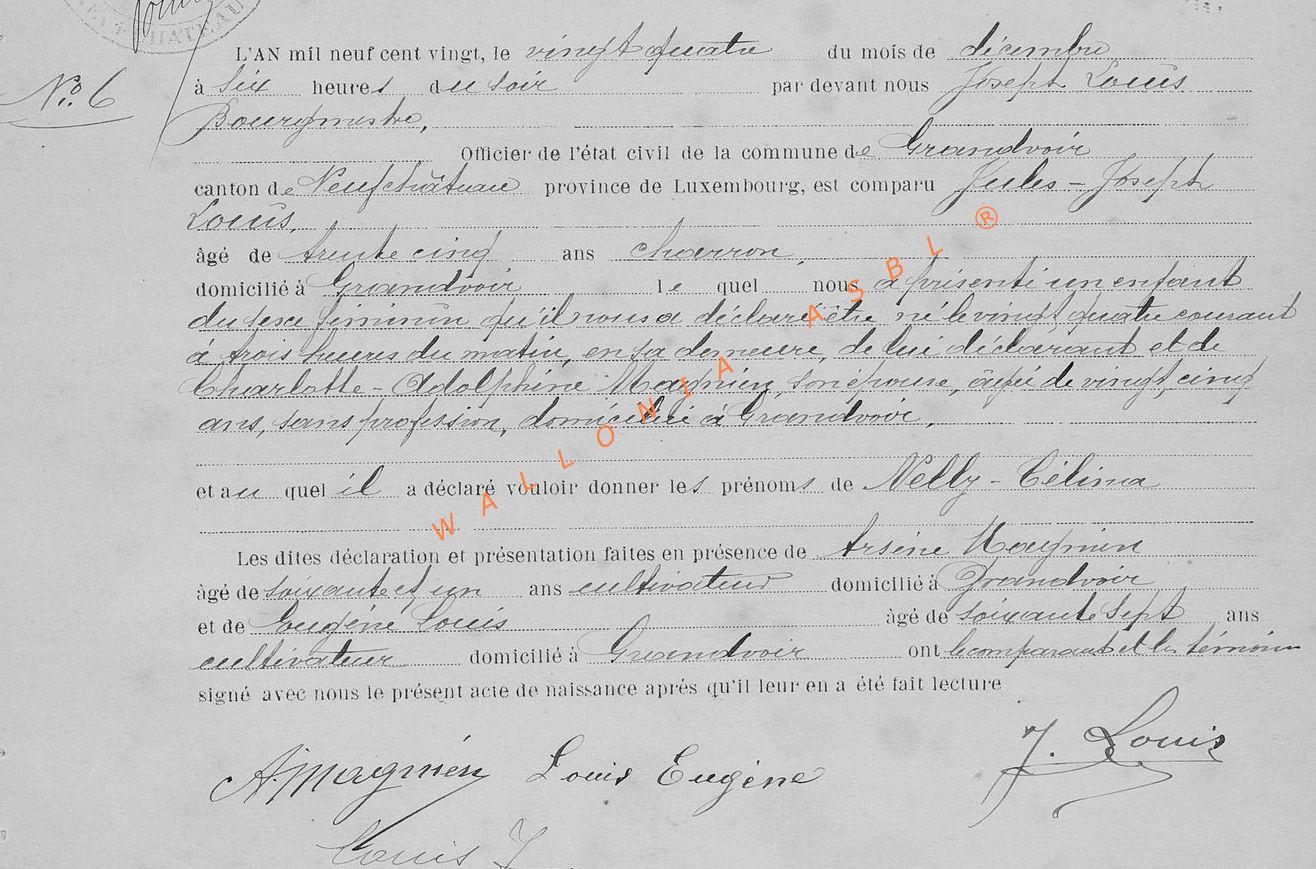 HATEAU
L'AN mil neuf cent vingt, le vingt quatre du mois de décembre
No. 6
à six heures du soir par devant nous Joseph Louis
Bourgmestre,
Officier de l'état civil de la commune de Grandvoir
canton de Neufchâteau province de Luxembourg, est comparu Jules - Joseph
Louis.
âgé de trente cinq ans charron,
domicilié à Grandvoir le quel nous a présenté un enfant
du sexe féminin qu'il nous a déclaré être né le vingt quatre courant
à trois heures du matin, en sa demeure, de lui déclarant et de
Charlotte - Adolphine Magnien, son épouse, âgée de vingt cinq
ans, sans profession, domiciliée à Grandvoir.
et au quel il a déclaré vouloir donner les prénoms de Nelly - Célima
Les dites déclaration et présentation faites en présence de Arsène Magnien
âgé de soixante et un ans cultivateur domicilié à Grandvoir
et de Eugène Louis âgé de soixante sept ans
cultivateur domicilié à Grandvoir ont le comparant et les témoins
signé avec nous le présent acte de naissance après qu'il leur en a été fait lecture
A. Magnien Louis Eugène J. Louis
Louis J
WALLONIA ASBL ®